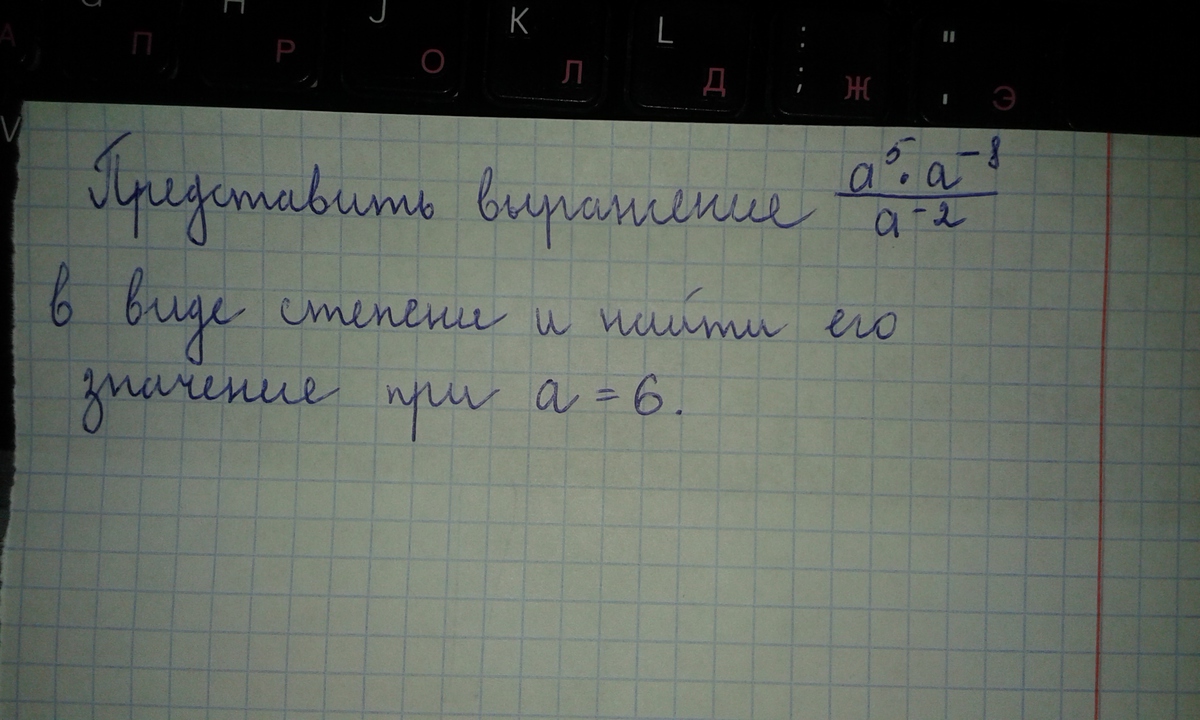 J K L : "
А П Р О Л Д ; Ж ' Э
V
Представить выражение a⁵·a⁻⁸/a⁻²
в виде степени и найти его
значение при a = 6.